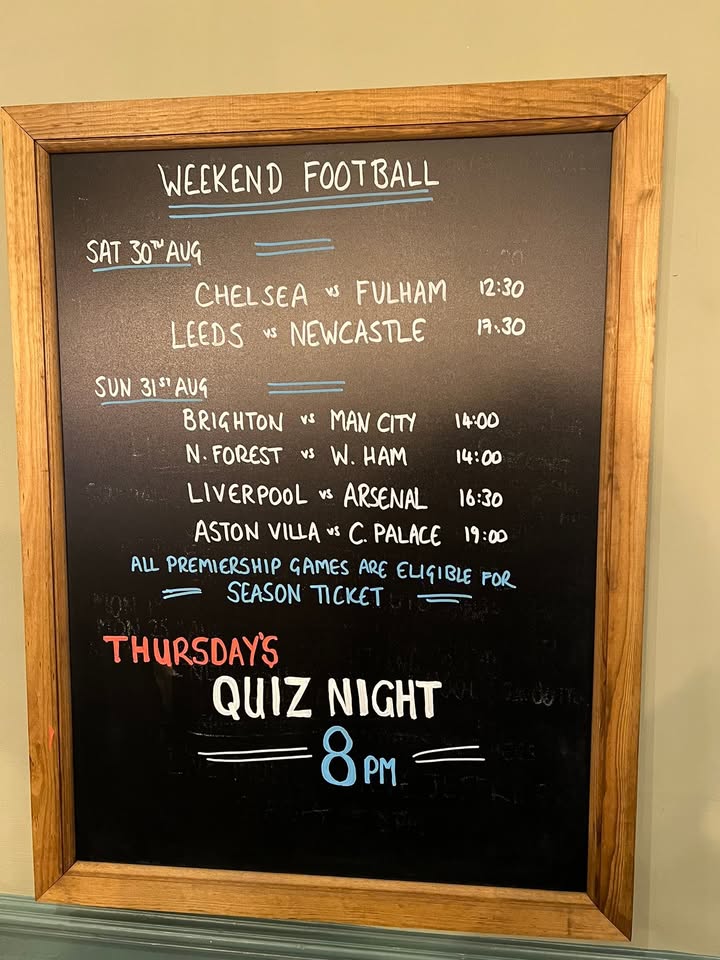 WEEKEND FOOTBALL
SAT 30TH AUG
CHELSEA vs FULHAM 12:30
LEEDS vs NEWCASTLE 17:30
SUN 31ST AUG
BRIGHTON vs MAN CITY 14:00
N. FOREST vs W. HAM 14:00
LIVERPOOL vs ARSENAL 16:30
ASTON VILLA vs C. PALACE 19:00
ALL PREMIERSHIP GAMES ARE ELIGIBLE FOR
SEASON TICKET
THURSDAY'S
QUIZ NIGHT
8PM